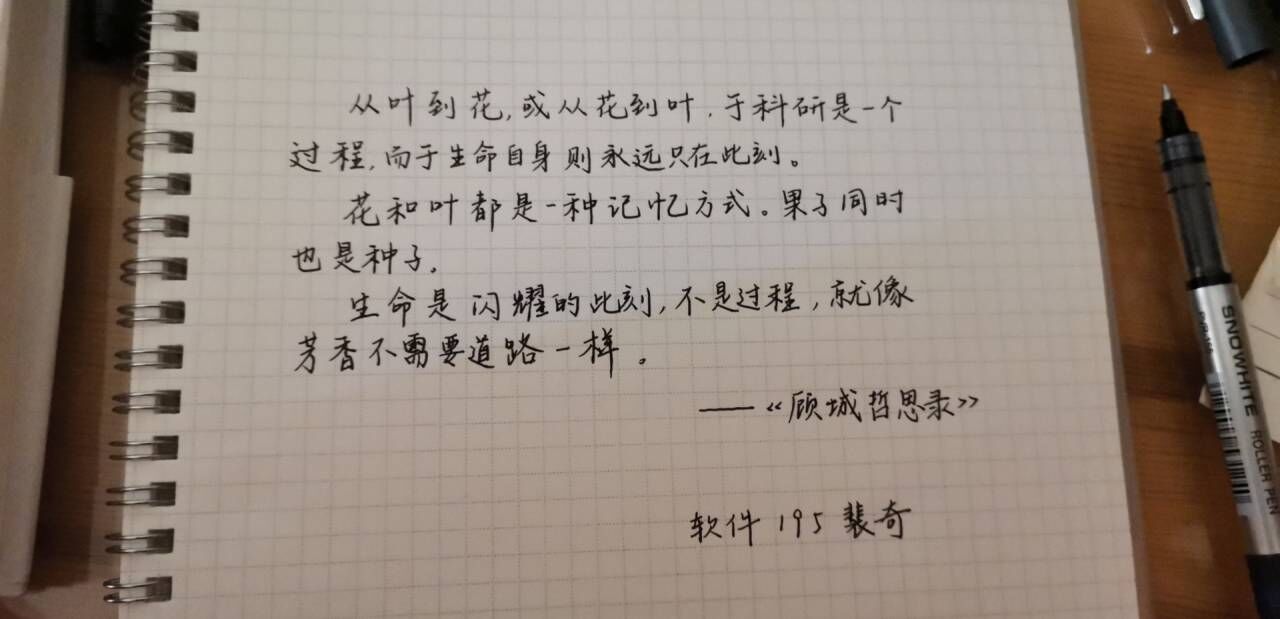 从叶到花,或从花到叶,于科研是一个
过程,而于生命自身则永远只在此刻。
花和叶都是一种记忆方式。果子同时
也是种子。
生命是闪耀的此刻,不是过程,就像
芳香不需要道路一样。
——《顾城哲思录》
软件195 裴奇
SNOWHITE ROLLER PEN